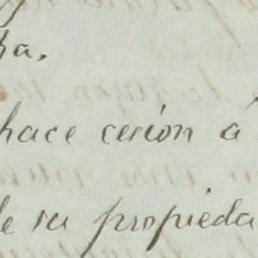 ra.
hace cerion á
de su propieda